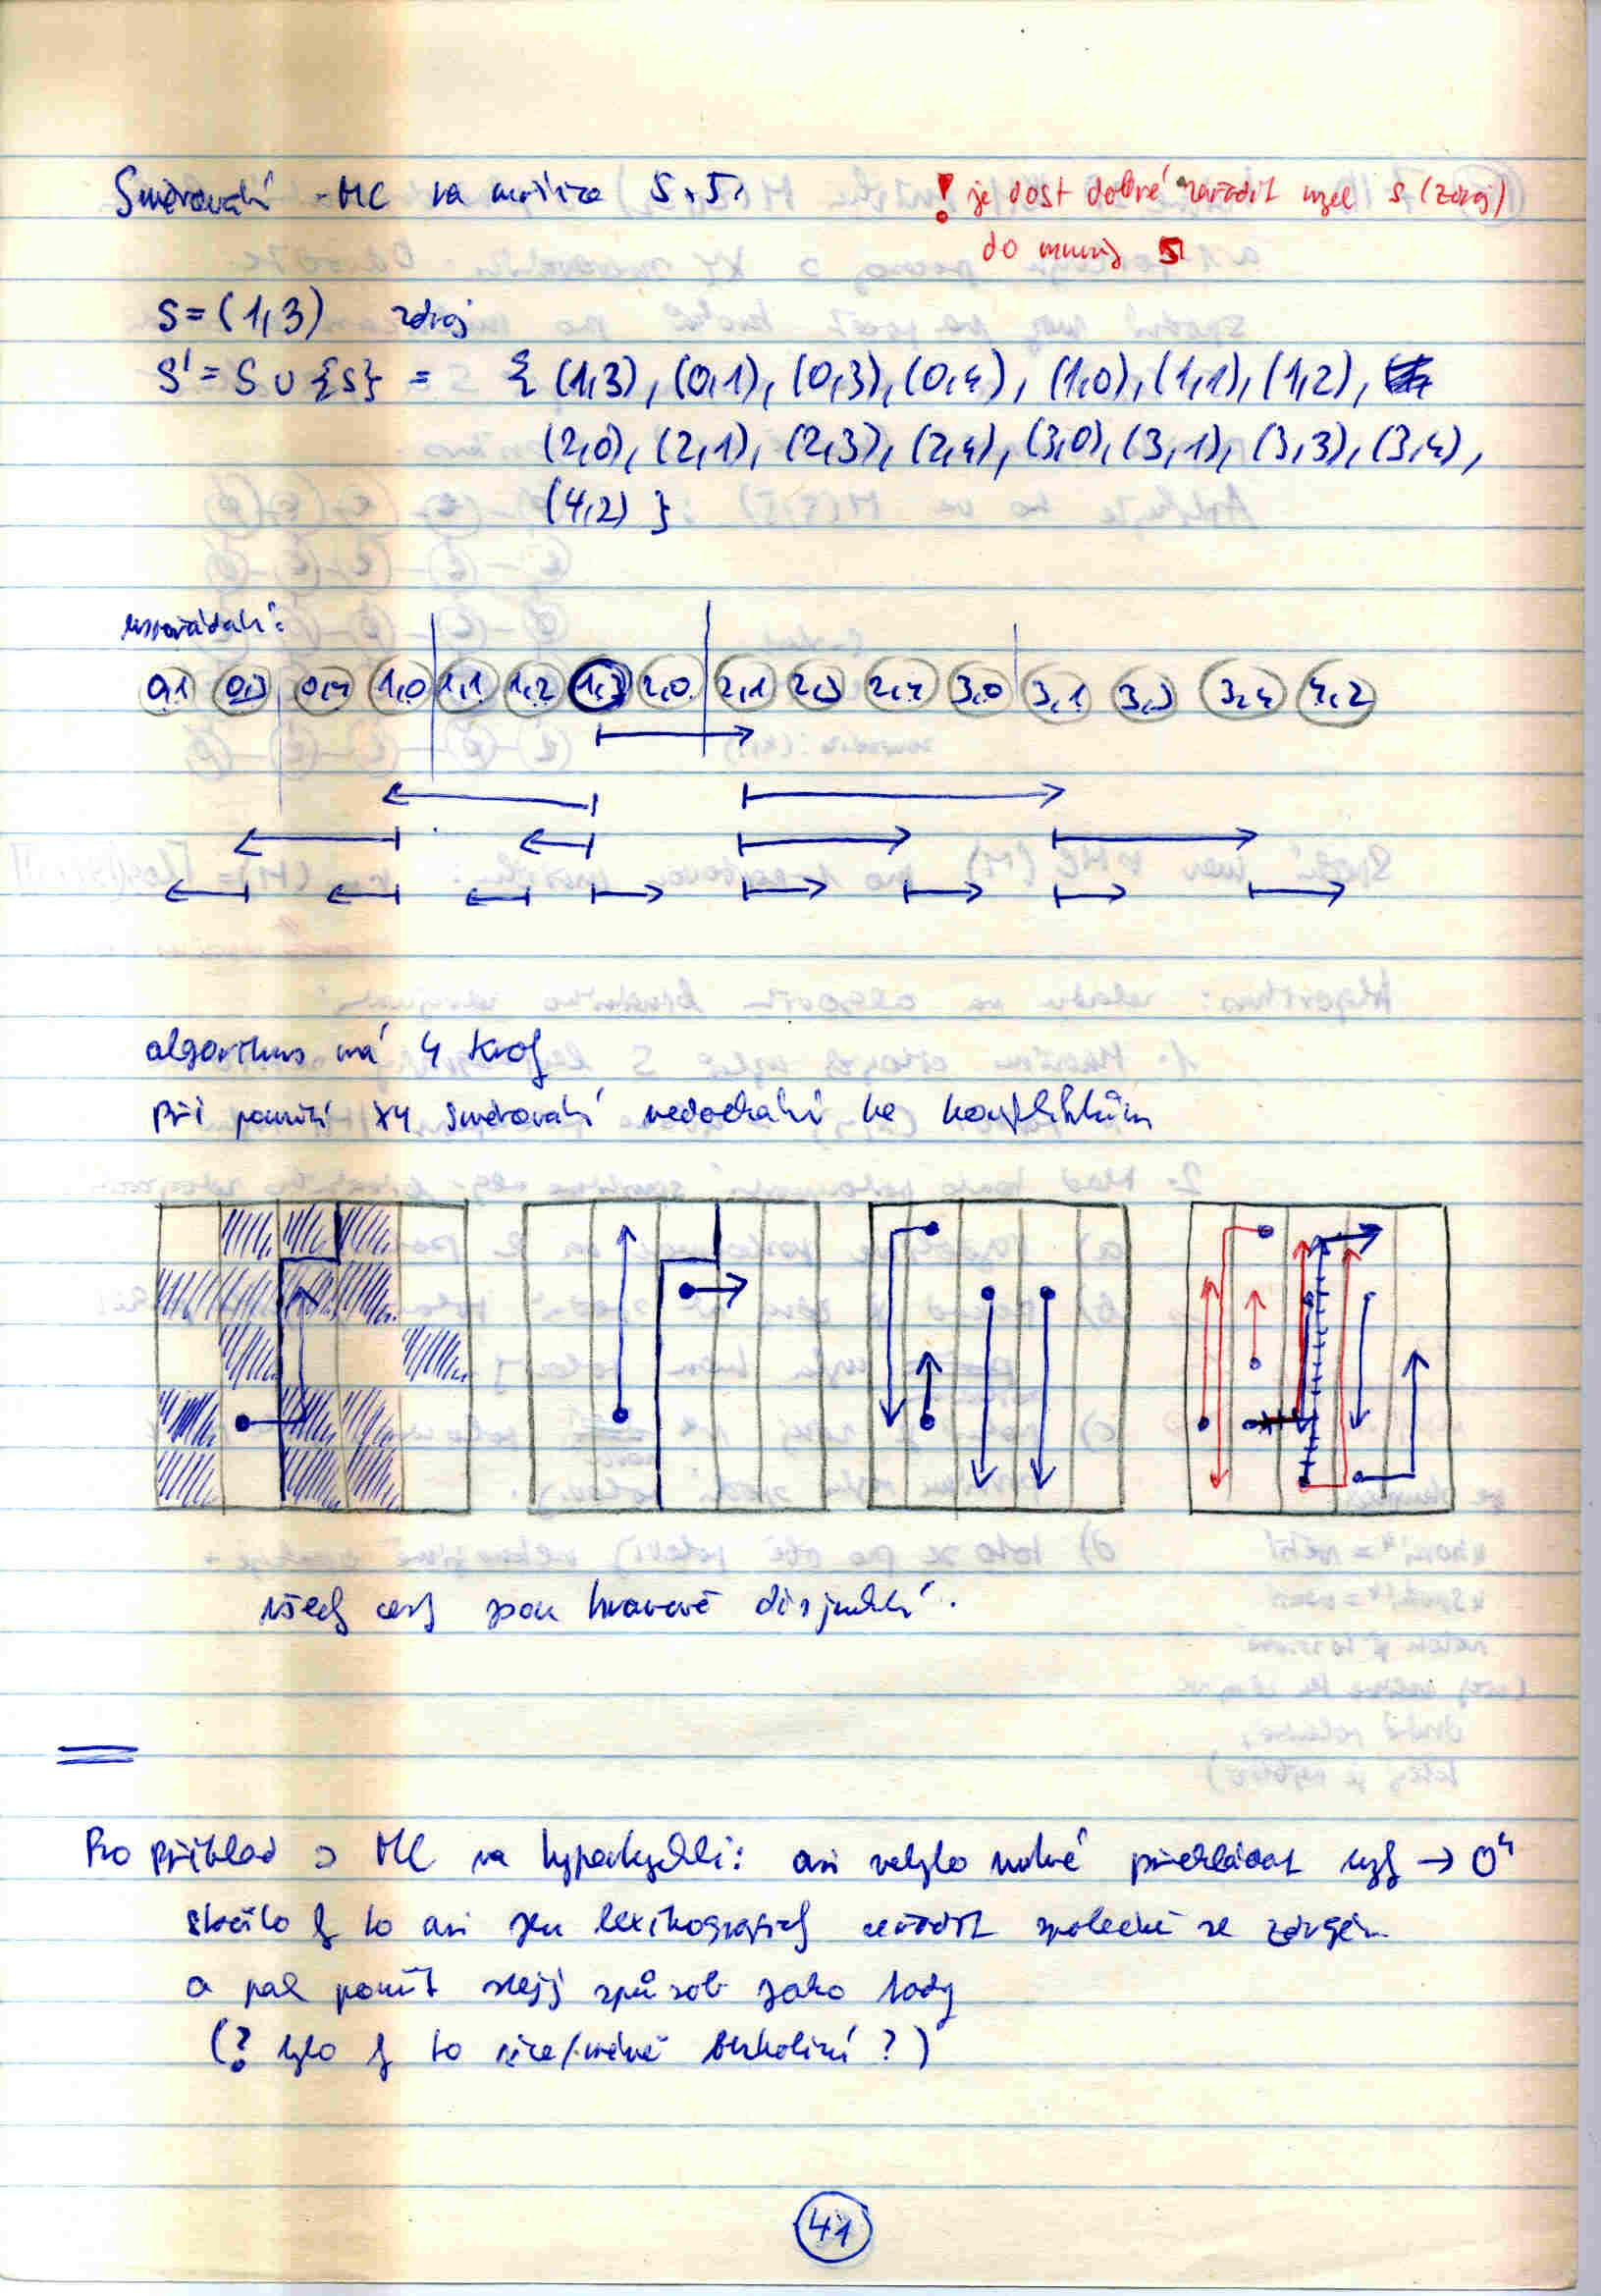 Směrování - MC na mřížce 5×5:
! je dost dobré zařadit uzel s (zdroj)
do množ S
s=(1,3) zdroj
S' = S ∪ {s} = { (1,3), (0,1), (0,3), (0,4), (1,0), (1,1), (1,2),
(2,0), (2,1), (2,3), (2,4), (3,0), (3,1), (3,3), (3,4),
(4,2) }
uspořádání:
0,1 0,3 0,4 1,0 1,1 1,2 1,3 2,0 2,1 2,3 2,4 3,0 3,1 3,3 3,4 4,2
algoritmus má 4 kroky
při použití XY směrování nedochází ke konfliktům
všechy cesty jsou hranově disjunktní.
Pro příklad o MC na hyperkychli: asi nebylo nutné překládat uzly → 0⁴
stačilo by to asi jen lexikograficky seřadit společně se zdrojem
a pak použít stejný způsob jako tady
(? bylo by to více/méně bezkolizní ?)
41